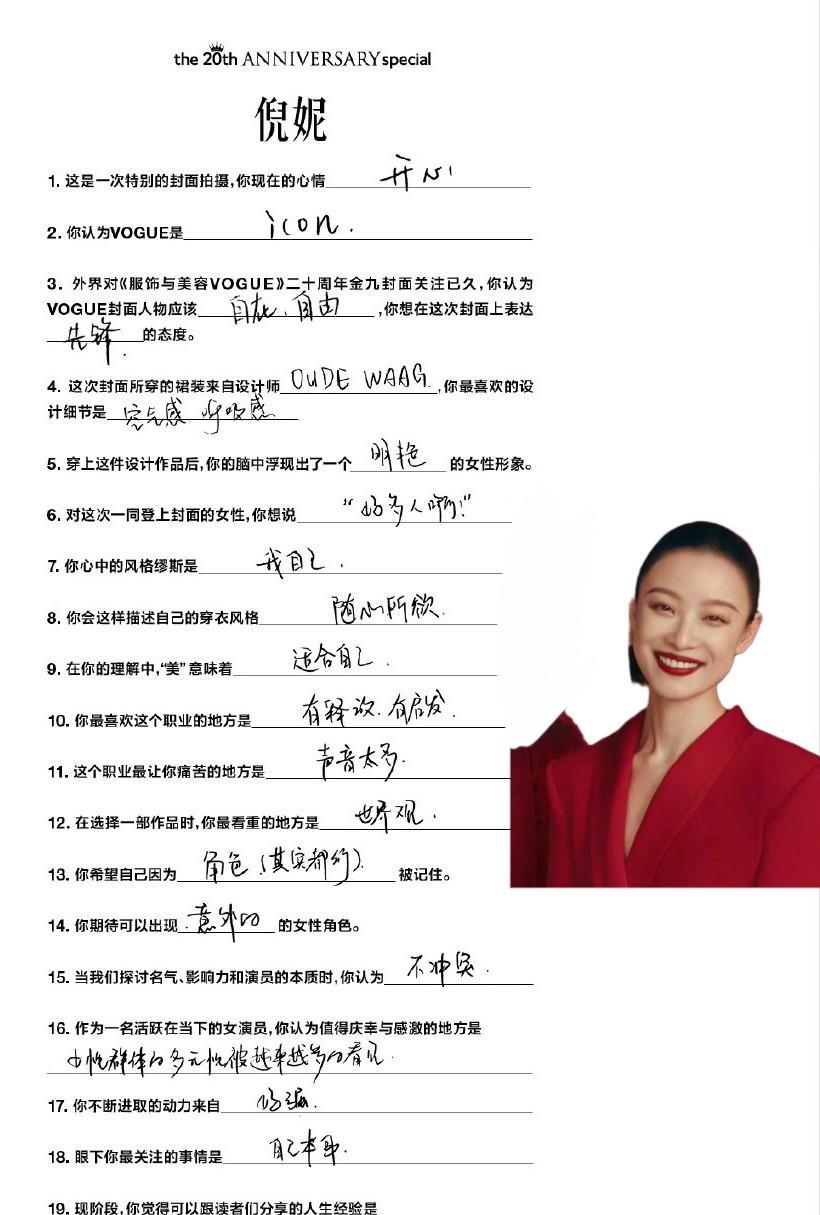 the 20th ANNIVERSARY special
倪妮
1. 这是一次特别的封面拍摄,你现在的心情 开心
2. 你认为VOGUE是 icon.
3. 外界对《服饰与美容VOGUE》二十周年金九封面关注已久,你认为
VOGUE封面人物应该 自在、自由 ,你想在这次封面上表达
先锋. 的态度。
4. 这次封面所穿的裙装来自设计师 OUDE WAAG. ,你最喜欢的设
计细节是 空气感 呼吸感
5. 穿上这件设计作品后,你的脑中浮现出了一个 明艳 的女性形象。
6. 对这次一同登上封面的女性,你想说 “好多人啊!”
7. 你心中的风格缪斯是 我自己.
8. 你会这样描述自己的穿衣风格 随心所欲.
9. 在你的理解中,“美”意味着 适合自己.
10. 你最喜欢这个职业的地方是 有释放. 有启发.
11. 这个职业最让你痛苦的地方是 声音太多.
12. 在选择一部作品时,你最看重的地方是 世界观.
13. 你希望自己因为 角色(其实都行). 被记住。
14. 你期待可以出现 意外的 的女性角色。
15. 当我们探讨名气、影响力和演员的本质时,你认为 不冲突.
16. 作为一名活跃在当下的女演员,你认为值得庆幸与感激的地方是
女性群体的多元性被越来越多的看见.
17. 你不断进取的动力来自 好强.
18. 眼下你最关注的事情是 自己本身.
19. 现阶段,你觉得可以跟读者们分享的人生经验是